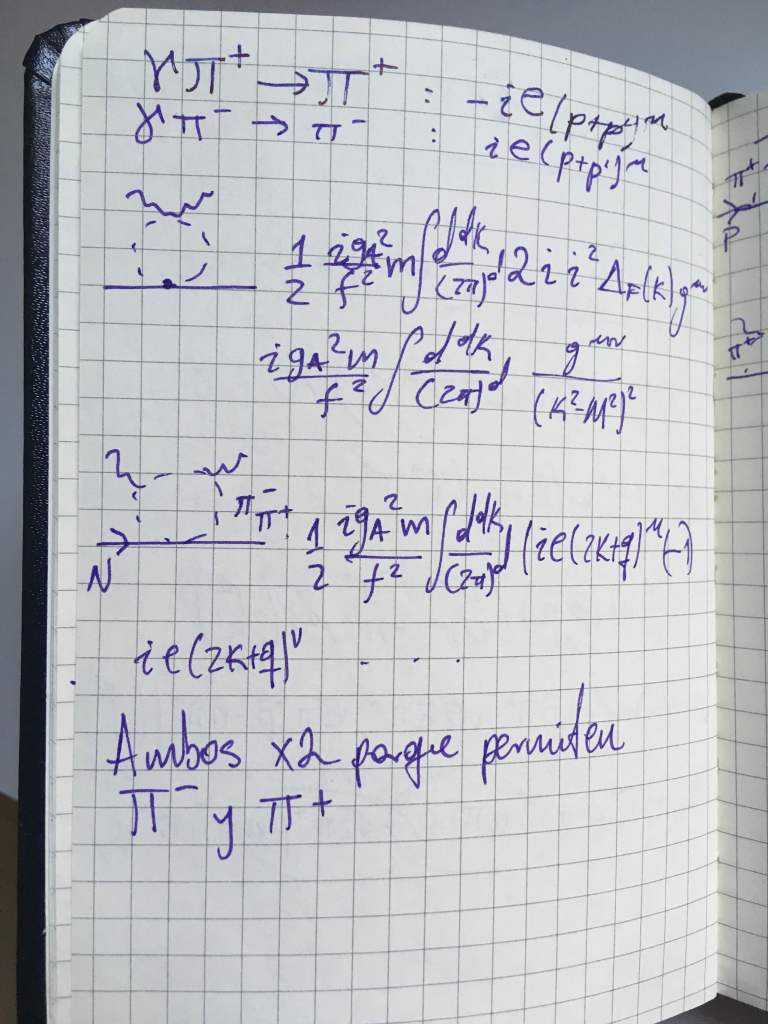 γπ⁺ → π⁺ : -ie(p+p')^μ
γπ⁻ → π⁻ : ie(p+p')^μ
1/2 ig_A²m/f² ∫ d^dk/(2π)^d 2i i² Δ_F(k) g^μν
ig_A²m/f² ∫ d^dk/(2π)^d g^μν/(k²-M²)²
π⁻
π⁺
N
1/2 ig_A²m/f² ∫ d^dk/(2π)^d (ie(2k+q)^μ (-1)
ie(2k+q)^ν . . .
Ambos x2 porque permiten
π⁻ y π⁺